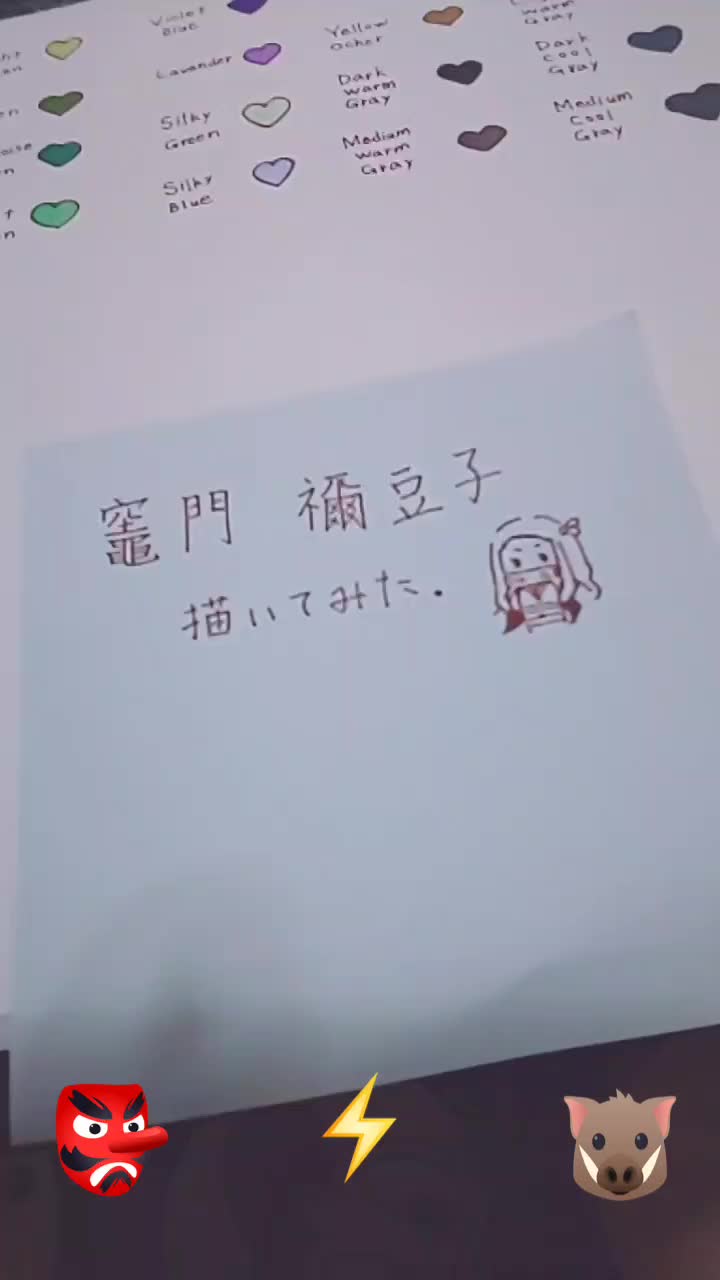 Violet
Blue
Lavender
Silky
Green
Silky
Blue
Yellow
Ocher
Dark
warm
Gray
Medium
warm
Gray
warm
Gray
Dark
cool
Gray
Medium
Cool
Gray
竈門 禰豆子
描いてみた.